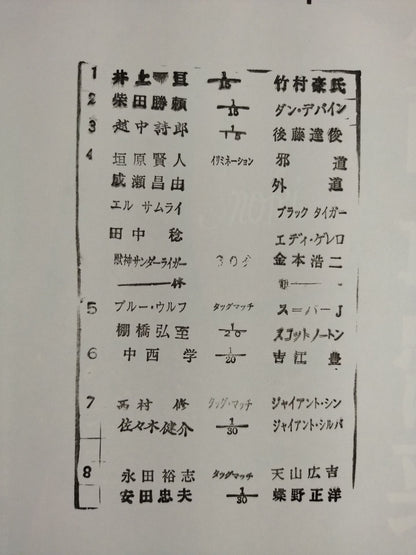 1 井上 亘 1/15 竹村豪氏
2 柴田勝頼 1/15 ダン・デバイン
3 越中詩郎 1/15 後藤達俊
4 垣原賢人 イリミネーション 邪道
成瀬昌由 外道
エル サムライ ブラック タイガー
田中 稔 エディ・ゲレロ
獣神サンダーライガー 30分 金本浩二
5 ブルー・ウルフ タッグマッチ スーパーJ
棚橋弘至 1/20 スコットノートン
6 中西 学 1/20 吉江 豊
7 西村 修 タッグ・マッチ ジャイアント・シン
佐々木健介 1/30 ジャイアント・シルバ
8 永田裕志 タッグマッチ 天山広吉
安田忠夫 1/30 蝶野正洋